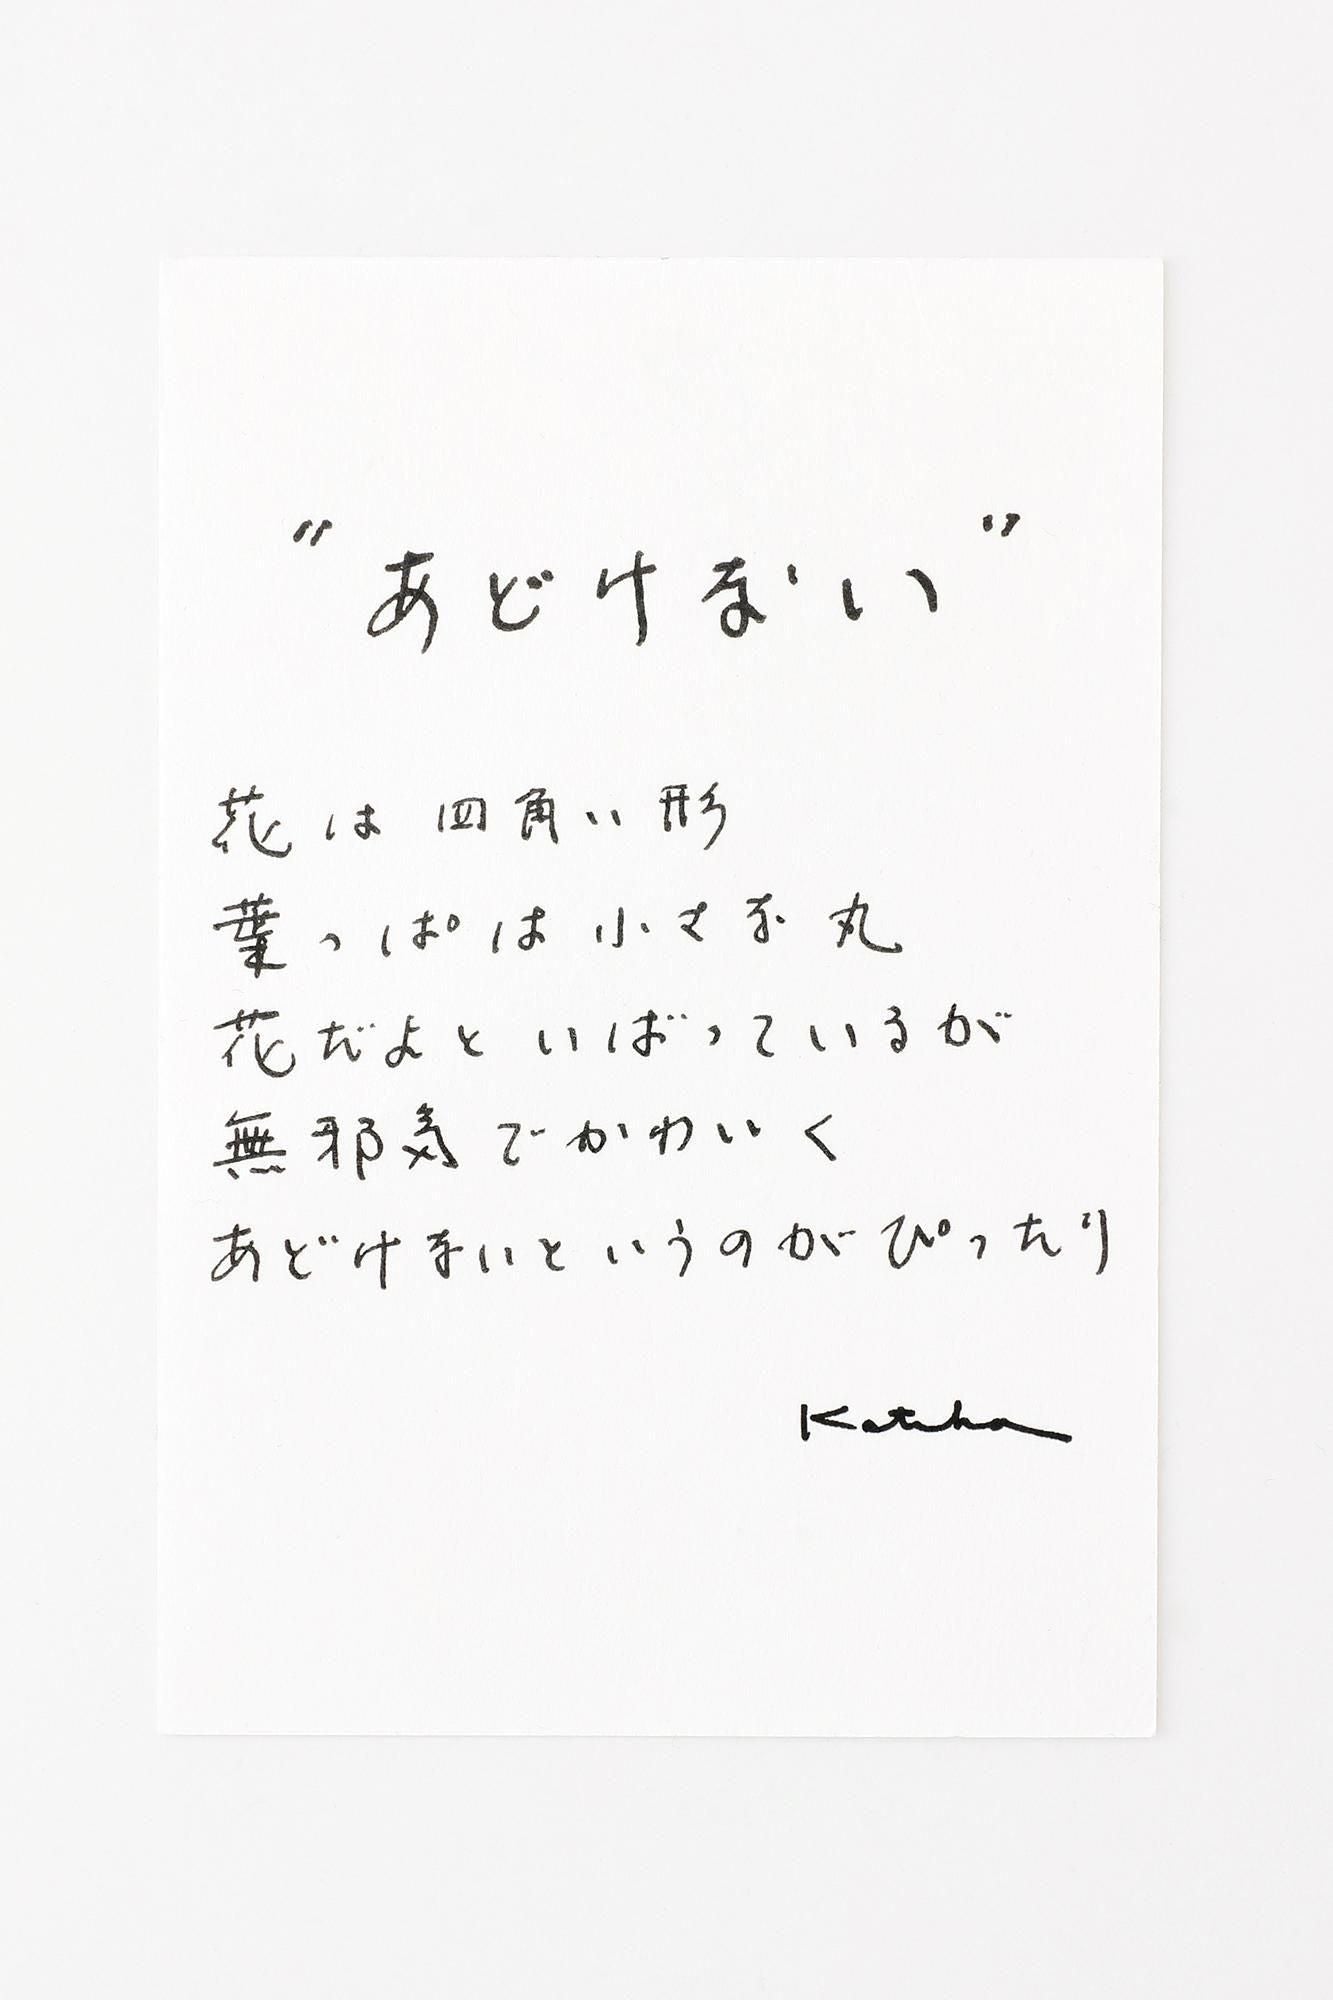 "あどけない"
花は四角い形
葉っぱは小さな丸
花だよといばっているが
無邪気でかわいく
あどけないというのがぴったり